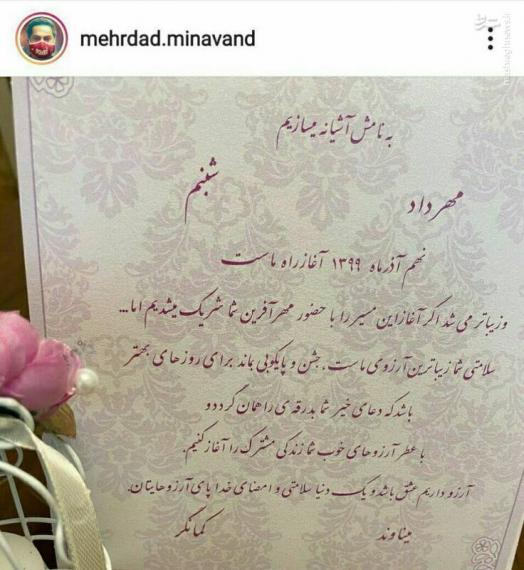 mehrdad.minavand
به نامش آشیانه میسازیم
شبنم
مهرداد
نهم آذرماه ۱۳۹۹ آغاز راه ماست
وزیباتر می شد اگر آغاز این مسیر را با حضور مهرآفرین شما شریک میشدیم اما...
سلامتی شما زیباترین آرزوی ماست. جشن و پایکوبی بماند برای روزهای بهتر
باشد که دعای خیر شما بدرقه ی راهمان گردد و
با عطر آرزوهای خوب شما زندگی مشترک را آغاز کنیم.
آرزو داریم عشق باشد و یک دنیا سلامتی و امضای خدا پای آرزوهایتان.
میناوند
کمانگر